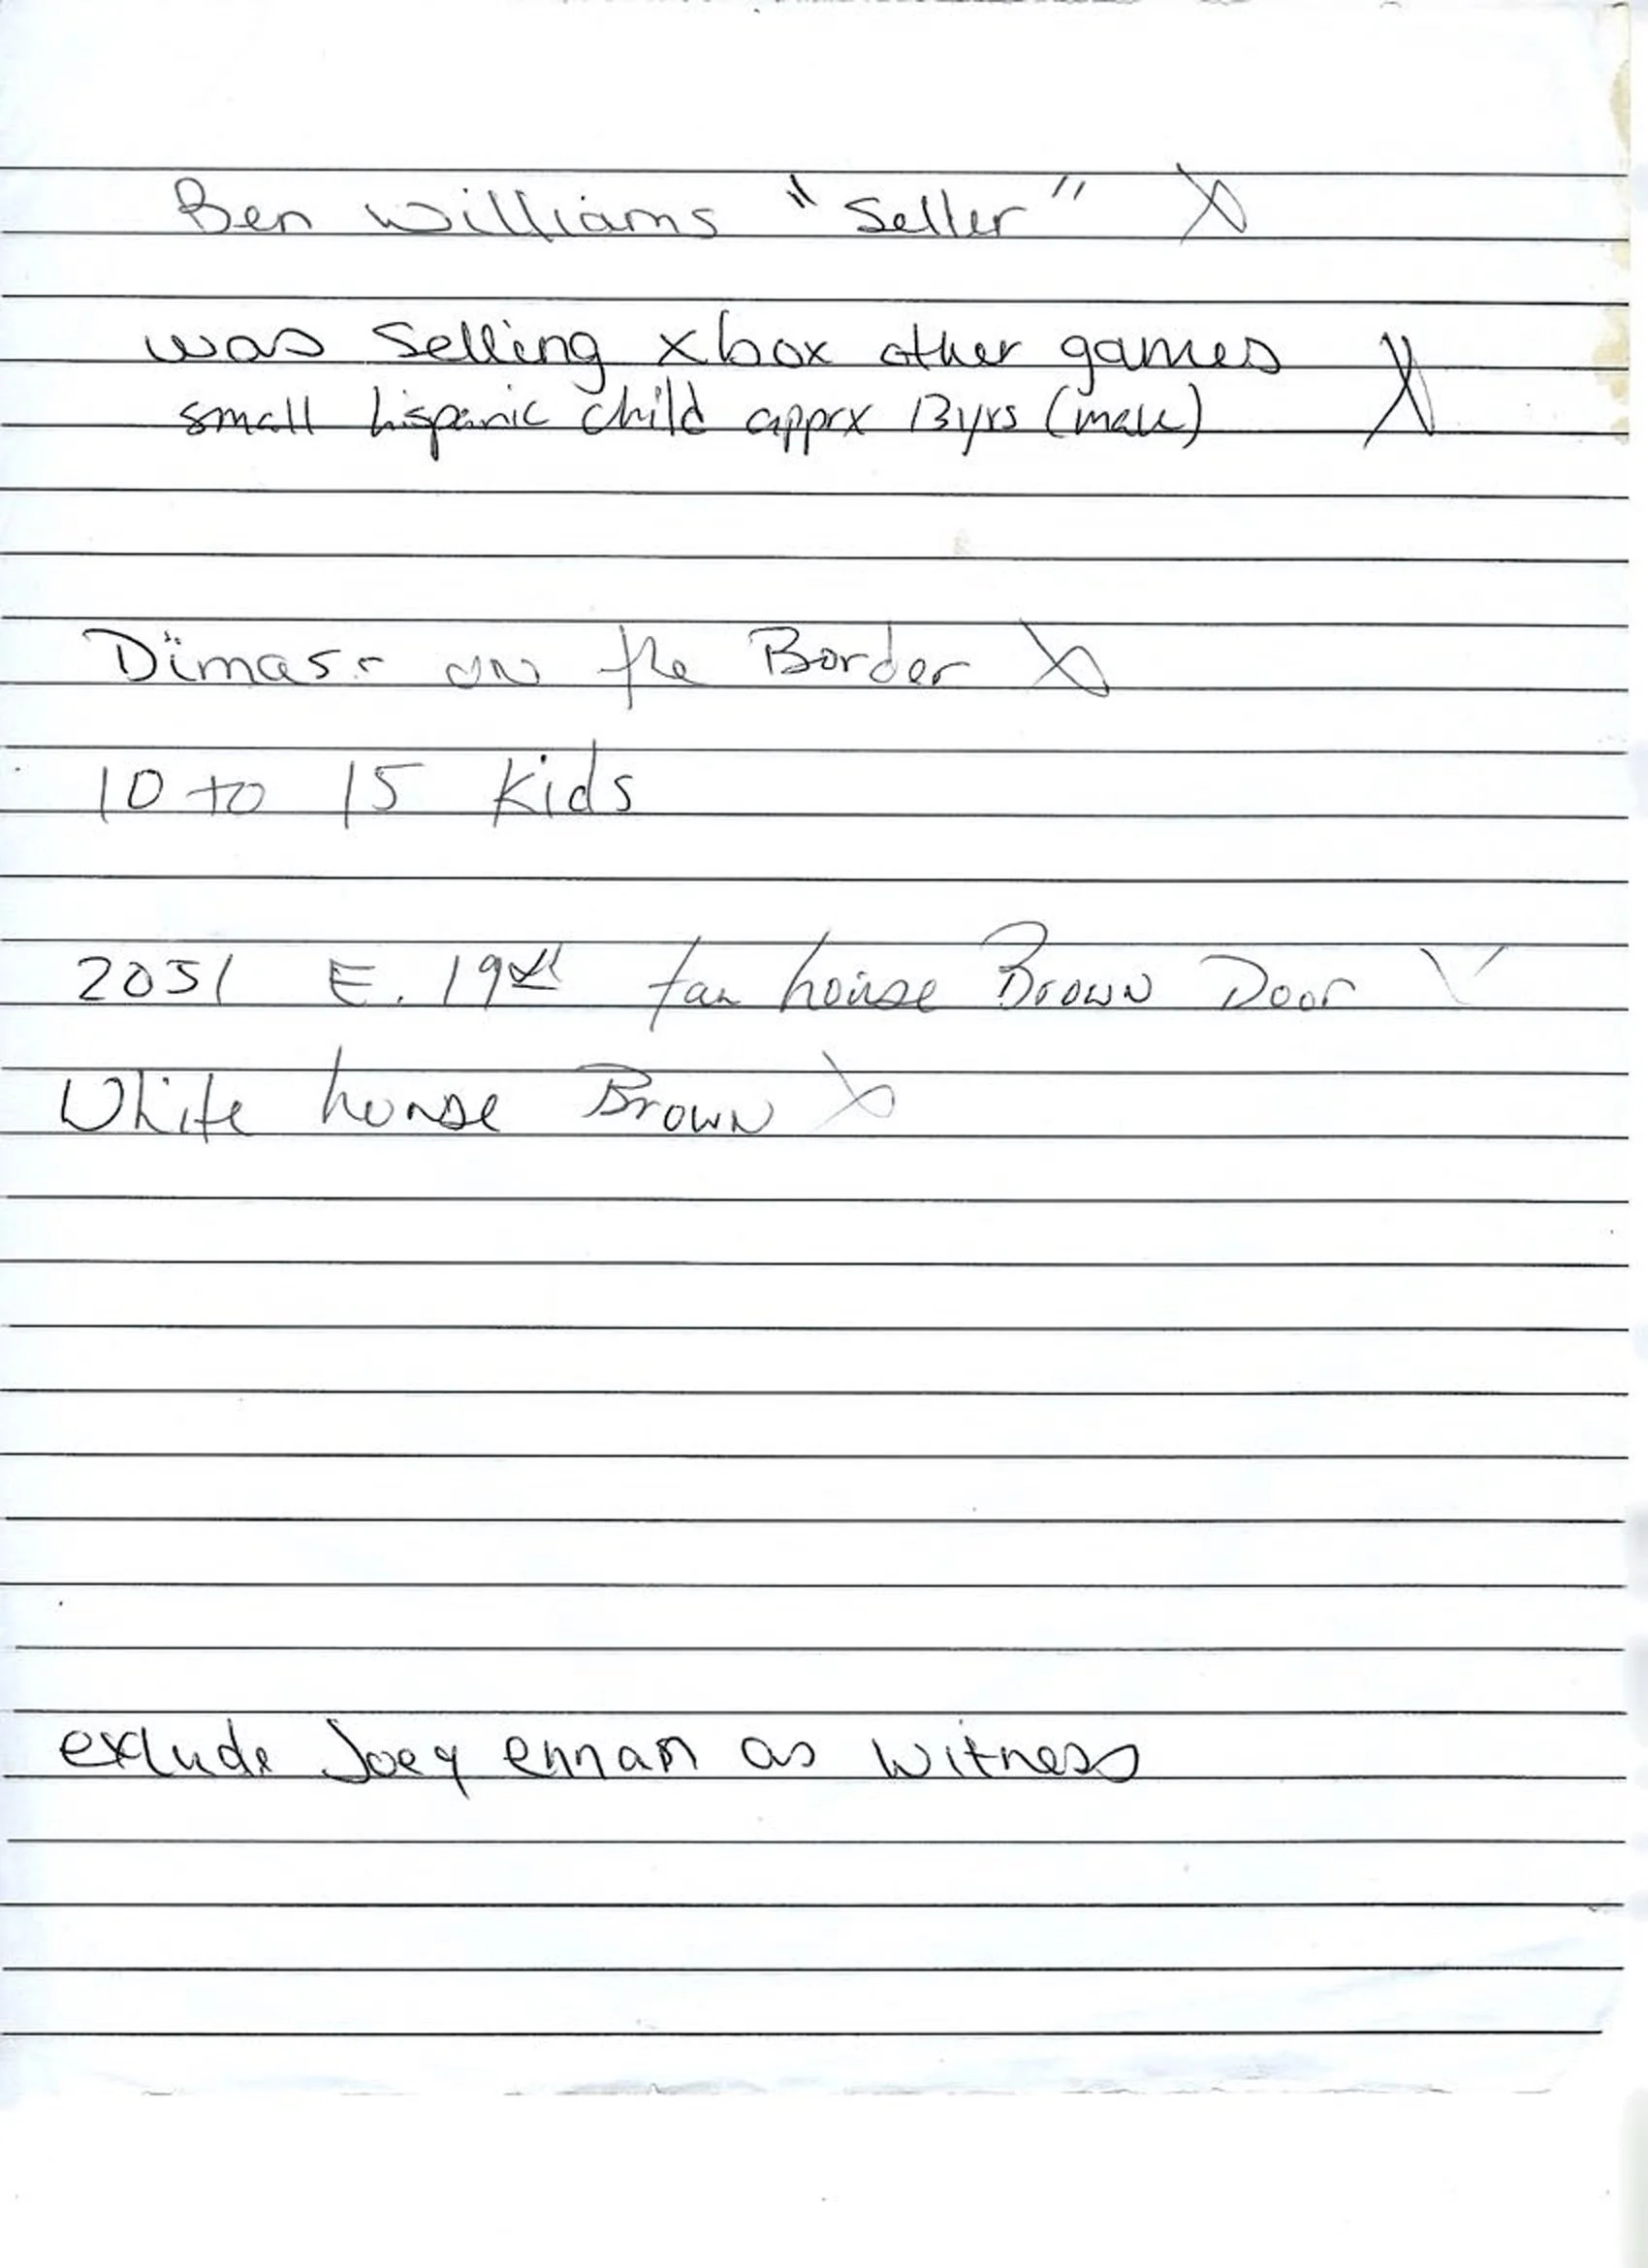 Ben Williams "Seller" X
was Selling xbox other games X
small hispanic child apprx 13yrs (male)
on the Border X
10 to 15 kids
2051 E. 19th tan house Brown Door
White house Brown X
exlude Joey as witness